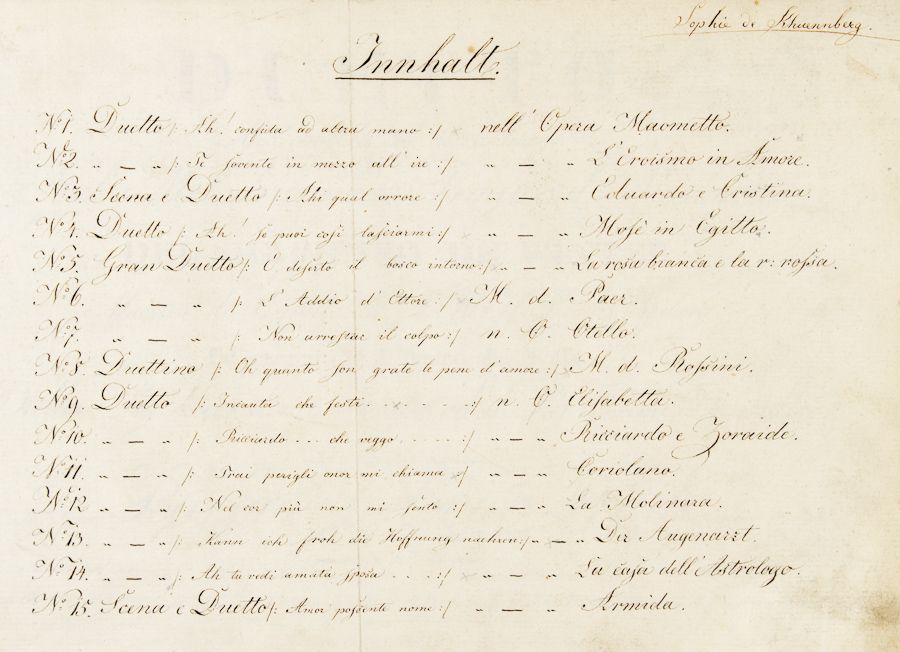 Sophie de Khuennberg.
Innhalt.
No 1. Duetto /: Ah! confida ad altra mano :/ nell' Opera Maometto.
No 2. „ — „ /: Se sovente in mezzo all' ire :/ „ — „ L'Eroismo in Amore.
No 3. Scena e Duetto /: Ahi qual orrore :/ „ — „ Eduardo e Cristina.
No 4. Duetto /: Ah! se puoi cosi lasciarmi :/ „ — „ Mosè in Egitto.
No 5. Gran Duetto /: È deserto il bosco intorno :/ „ — „ La rosa bianca e la r: rossa.
No 6. „ — „ /: L'Addio d'Ettore :/ M. d. Paer.
No 7. „ — „ /: Non arrestar il colpo :/ n. O. Otello.
No 8. Duettino /: Oh quanto son grate le pene d'amore :/ M. d. Rossini.
No 9. Duetto /: Incauta che festi . . . . . . . :/ n. O. Elisabetta.
No 10. „ — „ /: Ricciardo . . . che veggo . . . . . :/ „ — „ Ricciardo e Zoraide.
No 11. „ — „ /: Frai perigli onor mi chiama :/ „ — „ Coriolano.
No 12 „ — „ /: Nel cor più non mi sento :/ „ — „ La Molinara.
No 13. „ — „ /: Kann ich froh die Hoffnung nachren :/ „ — „ Der Augenarzt.
No 14. „ — „ /: Ah tu vedi amata sposa . . . . :/ „ — „ La casa dell' Astrologo.
No 15. Scena e Duetto /: Amor possente nome :/ „ — „ Armida.